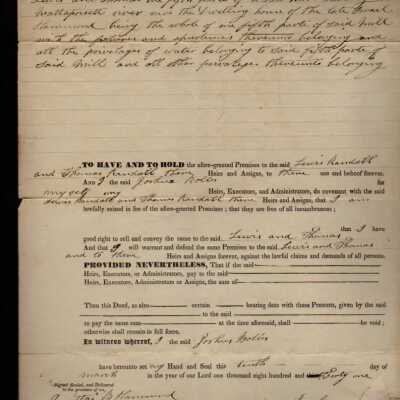 Mattapoisett river and the dwelling house of the late Israel
Hammond being the whole of one fifth parte of said Mill
with the and thereunto belonging and
all the privileges of water belonging to said fifth parte of
said Mill and all other privileges thereunto belonging
TO HAVE AND TO HOLD the afore-granted Premises to the said Lewis Randall
and Thomas Randall there Heirs and Assigns, to there use and behoof forever.
And I the said Joshua
my self my Heirs, Executors, and Administrators, do covenant with the said
Lewis Randall and Thomas Randall there Heirs and Assigns, that I am
lawfully seized in fee of the afore-granted Premises; that they are free of all incumbrances;
that I have
good right to sell and convey the same to the said Lewis and Thomas
And that I will warrant and defend the same Premises to the said Lewis and Thomas
and to there Heirs and Assigns forever, against the lawful claims and demands of all persons.
PROVIDED NEVERTHELESS, That if the said
Heirs, Executors, or Administrators, pay to the said
Heirs, Executors, Administrators or Assigns, the sum of
Then this Deed, as also certain bearing date with these Presents, given by the said
to the said
to pay the same sum at the time aforesaid, shall be void;
otherwise shall remain in full force.
In witness whereof, I the said Joshua
have hereunto set my Hand and Seal this tenth day of
march in the year of our Lord one thousand eight hundred and one
Signed Sealed, and Delivered
in the presence of us
Hammond